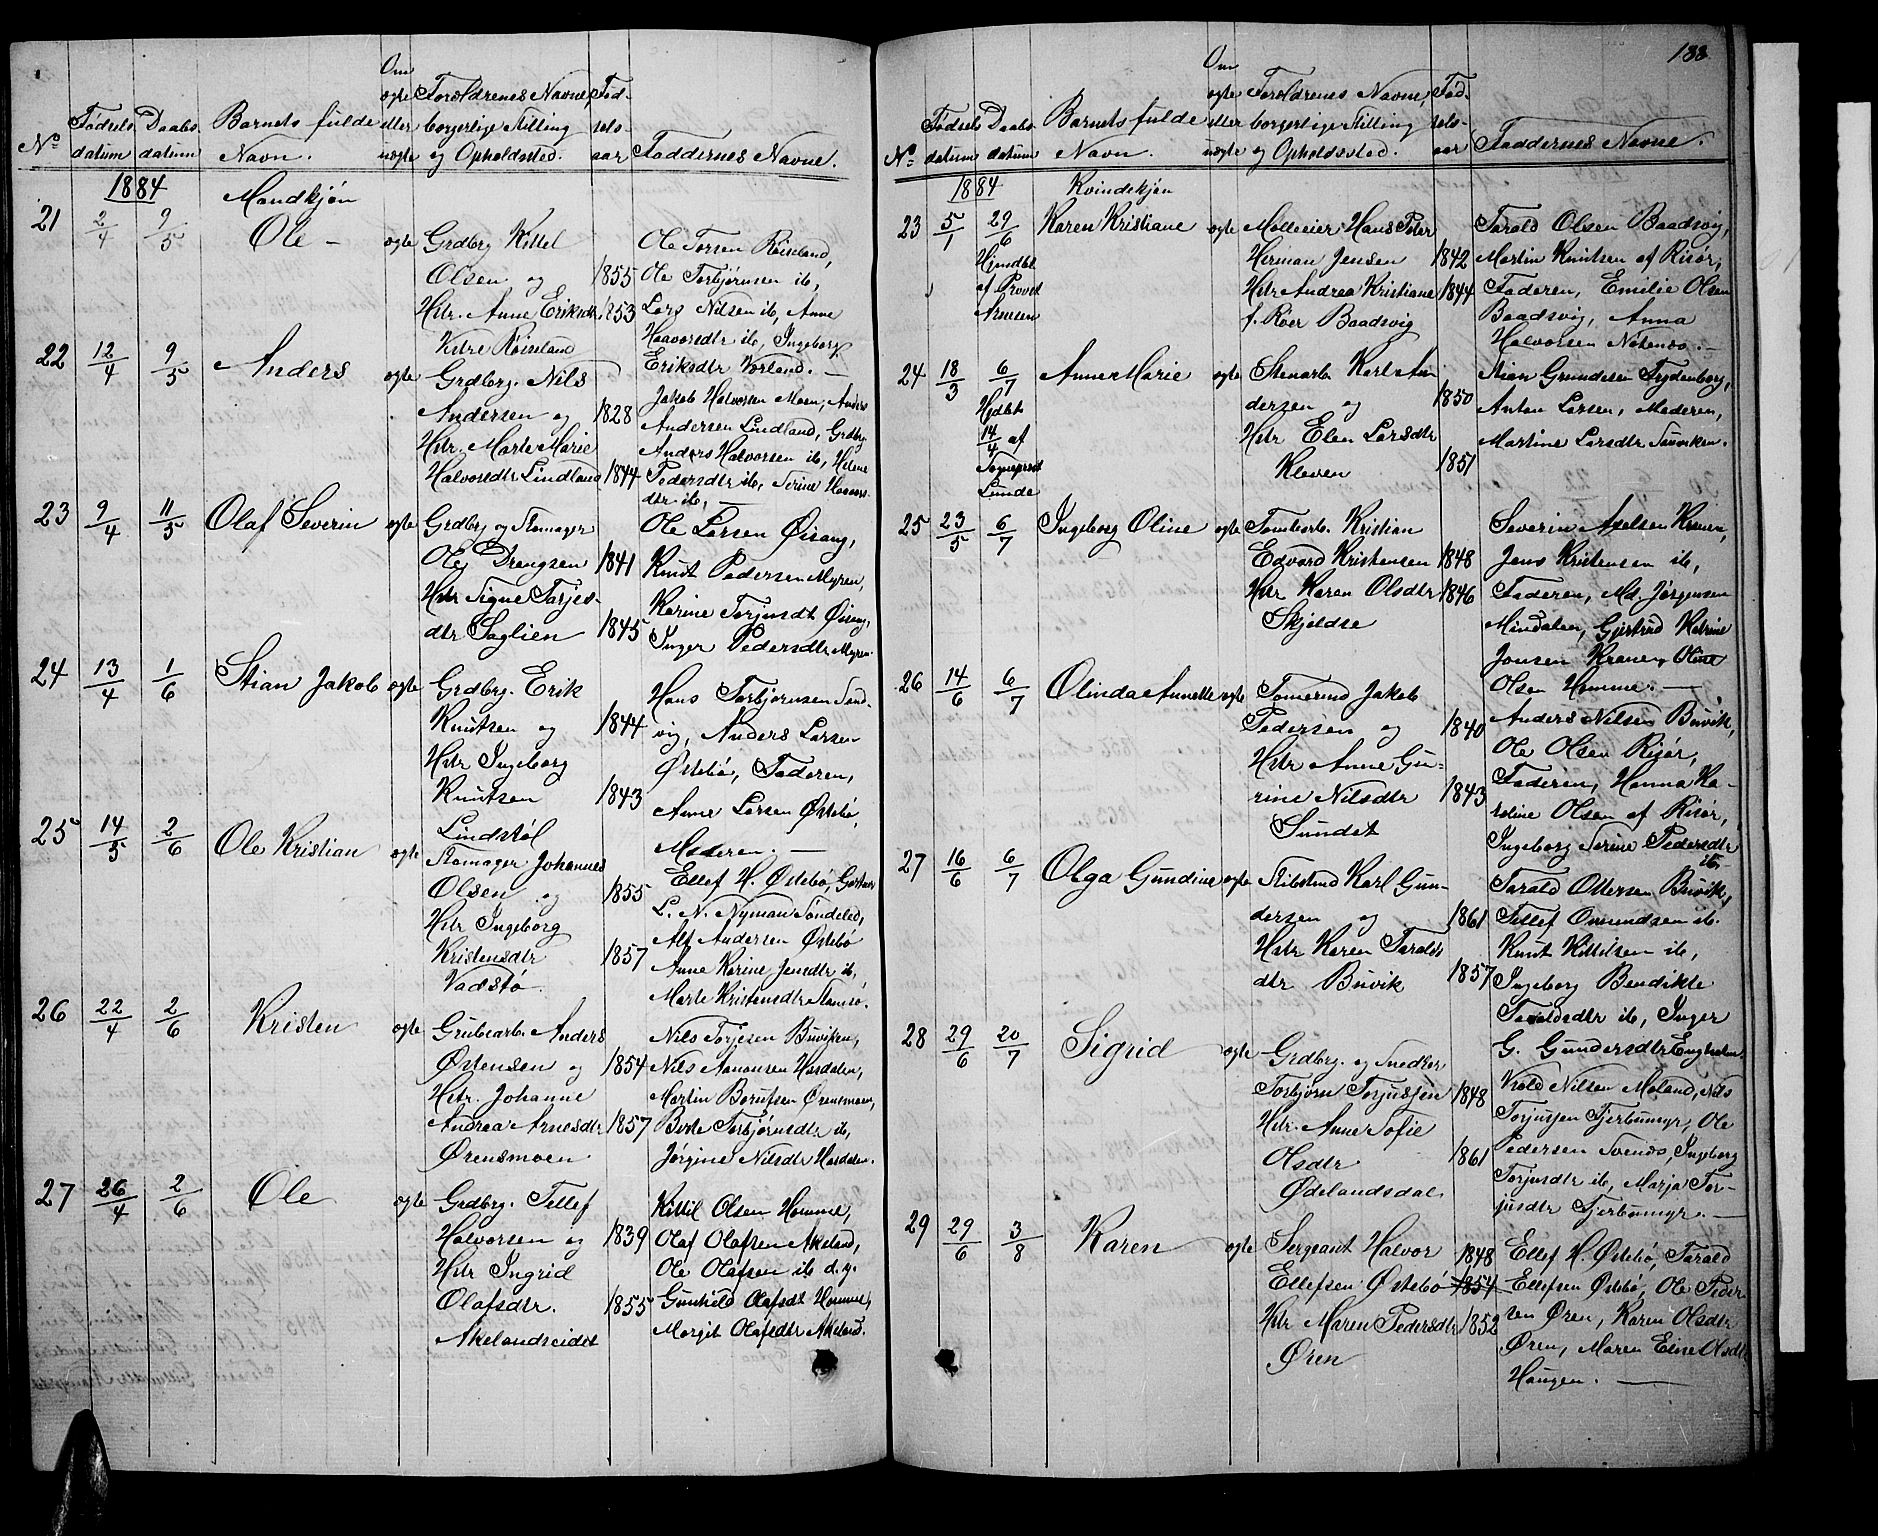 Nº
Fødsels
datum
Daabs
datum
Barnets fulde
Navn.
Om
ægte
eller
uægte
Forældrenes Navne,
borgerlige Stilling
og Opholdssted.
Fød-
sels-
aar
Faddernes Navne.
1884
Mandkjøn
21
2/4
9/5
Ole -
ægte
Grdbrg Kittel
Olsen og
Hstr. Anne Eriksdtr
Røiseland
1855
1853
Ole Torsen Røiseland,
Ole Torbjørnsen ib,
Lars Nilsen ib, Anne
Haavorsdtr ib, Ingeborg
Eriksdtr Vorland. —
22
12/4
9/5
Anders
ægte
Grdbrg. Nils
Andersen og
Hstr. Marte Marie
Halvorsdtr Lindland
1828
1844
Jakob Halvorsen Moen, Anders
Andersen Lindland, Grdbrg
Anders Halvorsen ib, Helene
Pedersdtr ib, Serine Haavors-
dtr ib, —
23
9/4
11/5
Olaf Severin
ægte
Grdbrg og Stamager
Ole Drengsen
Hstr Signe Tarjes-
dtr Saglien
1841
1845
Ole Larsen Øisang,
Knut Pedersen Myren,
Karine Torjusdt Øisang,
Inger Pedersdtr Myren.
24
13/4
1/6
Stian Jakob
ægte
Grdbrg. Erik
Knutsen og
Hstr Ingeborg
Knutsen
Lindstøl
1844
1843
Hans Torbjørnsen Sand-
vig, Anders Larsen
Østebø, Faderen,
Anne Larsen Østebø,
Moderen. —
25
14/5
2/6
Ole Kristian
ægte
Stamager Johannes
Olsen og
Hstr Ingeborg
Kristensdtr
Vadstø
1855
1857
Ellef H. Østebø, Gartner
L. N. Nyman Søndeled,
Alf Andersen Østebø
Anne Karine Jensdtr ib,
Marte Kristensdtr Stamsø.
26
22/4
2/6
Kristen
ægte
Grubearb. Anders
Østensen og
Hstr. Johanne
Andrea Arnesdtr
Ørensmoen
1854
1857
Nils Torjesen Buviken,
Nils Aanonsen Hasdalen,
Martin Berntsen Ørensmoen,
Berte Torbjørnsdtr ib,
Jørgine Nilsdtr Hasdalen.
27
26/4
2/6
Ole
ægte
Grdbrg. Tellef
Halvorsen og
Hstr Ingrid
Olafsdtr.
Akelandseidet
1839
1855
Kittil Olsen Homme,
Olaf Olafsen Akeland,
Ole Olafsen ib d. y.
Gunhild Olafsdt Homme,
Margit Olafsdtr Akeland.
188
Nº
Fødsels
datum
Daabs
datum
Barnets fulde
Navn.
Om
ægte
eller
uægte
Forældrenes Navne,
borgerlige Stilling
og Opholdssted.
Fød-
sels-
aar
Faddernes Navne.
1884
Kvindekjøn
23
5/1
29/6
Hjemdbt
af Provst
Arnesen
Karen Kristiane
ægte
Mølleeier Hans Peter
Herman Jensen
Hstr Andrea Kristiane
f. Røer Baadsvig
1842
1844
Tarald Olsen Baadsvig,
Martin Knutsen af Risør,
Faderen, Emilie Olsen
Baadsvig, Anna
Halvorsen
24
18/3
6/7
Hjdbt
14/4 af
Sognepræst
Lunde
Anne Marie
ægte
Stenarb. Karl An
dersen og
Hstr Elen Larsdtr
Kleven
1850
1851
Stian Gundersen Frydenborg,
Anton Larsen, Moderen,
Martine Larsdtr Sauviken.
25
23/5
6/7
Ingeborg Oline
ægte
Tomtearb. Kristian
Edvard Kristensen
Hstr Karen Olsdtr
Skjeldsø
1848
1846
Severin Axelsen Kranen,
Jens Kristensen ib,
Faderen, Md. Jørgensen
Mindalen, Gjertrud Katrine
Jonsen Kranen, Oline
Olsen Homme. —
26
14/6
6/7
Olinda Annette
ægte
Tømmermd Jakob
Pedersen og
Hstr Anne Gu-
rine Nilsdtr
Sundet
1840
1843
Anders Nilsen Buvik,
Ole Olsen Risør,
Faderen, Hanna Ka-
roline Olsen af Risør,
Ingeborg Serine Pedersdtr
ib,
27
16/6
6/7
Olga Gundine
ægte
Skibstmd Karl Gun-
dersen og
Hstr Karen Taralds
dtr Buvik
1861
1857
Tarald Ottersen Buvik,
Tellef Omundsen ib.
Knut Kittelsen ib,
Ingeborg Bendikte
Taraldsdtr ib, Inger
G. Gundersdtr Engholm.
28
29/6
20/7
Sigrid
ægte
Grdbrg. og Snedker
Torbjørn Torjussen
Hstr. Anne Sofie
Olsdtr
Ødelandsdal
1848
1861
Kold Nilsen Moland, Nils
Torjussen Fjerbumyr, Ole
Pedersen Svends, Ingeborg
Torjusdtr ib, Marja Tor-
jusdtr Fjerbumyr. —
29
29/6
3/8
Karen
ægte
Sergeant Halvor
Ellefsen Østebø
Hstr Maren Pedersdtr
Øren
1848
1854
1852
Ellef H. Østebø, Tarald
Ellefsen Østebø, Ole Peder
sen Øren, Karen Olsdtr
Øren, Maren Eline Olsdtr
Haugen. —